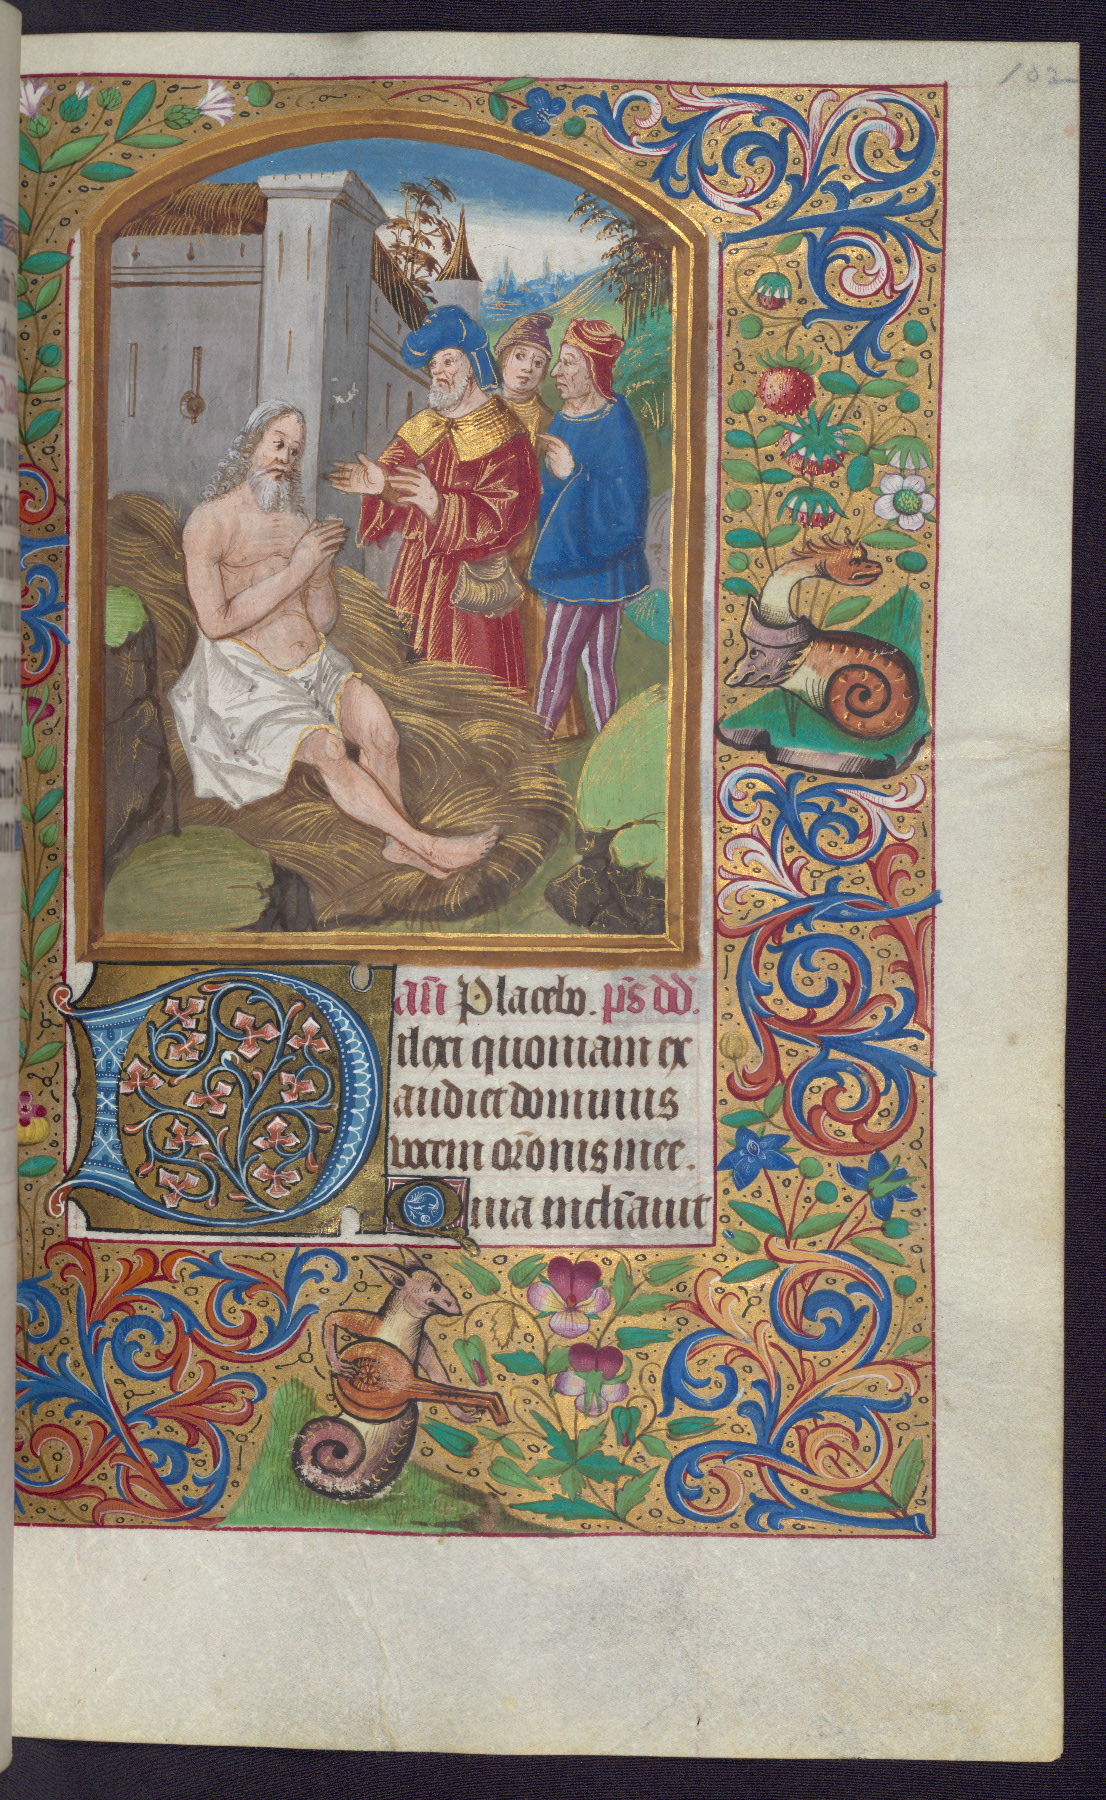 102
añ Placebo. p̄s dd̄.
Dilexi quoniam ex
audiet dominus
vocem or̄onis mee.
Quia inclīauit